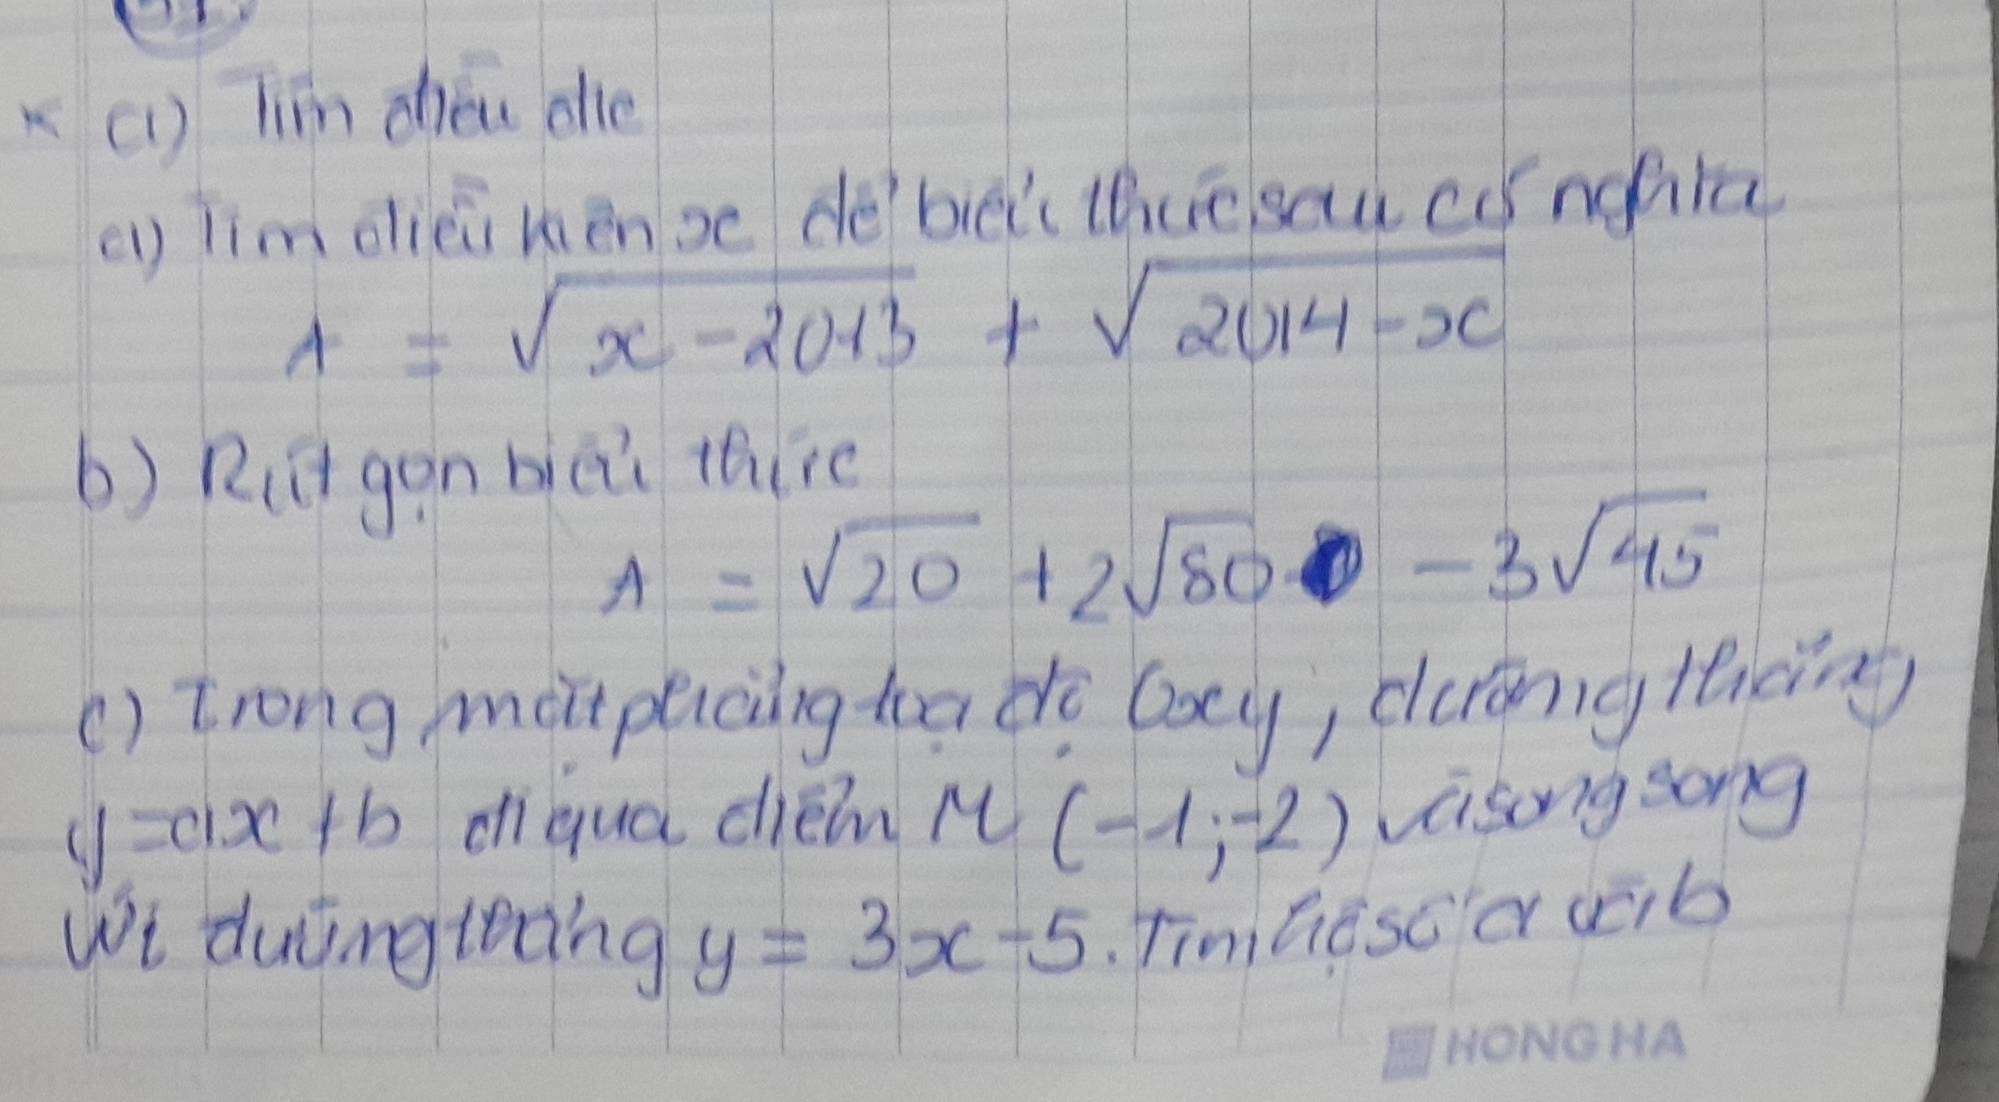 a) Tìm điều đk
a) Tìm điều kiện x để biểu thức sau có nghĩa
A = √x - 2013 + √2014 - x
b) Rút gọn biểu thức
A = √20 + 2√80 - 3√45
c) Trong mặt phẳng tọa độ Oxy, đường thẳng
y = ax + b đi qua điểm M (-1; -2) và song song
với đường thẳng y = 3x - 5. Tìm hệ số a và b
HONG HA